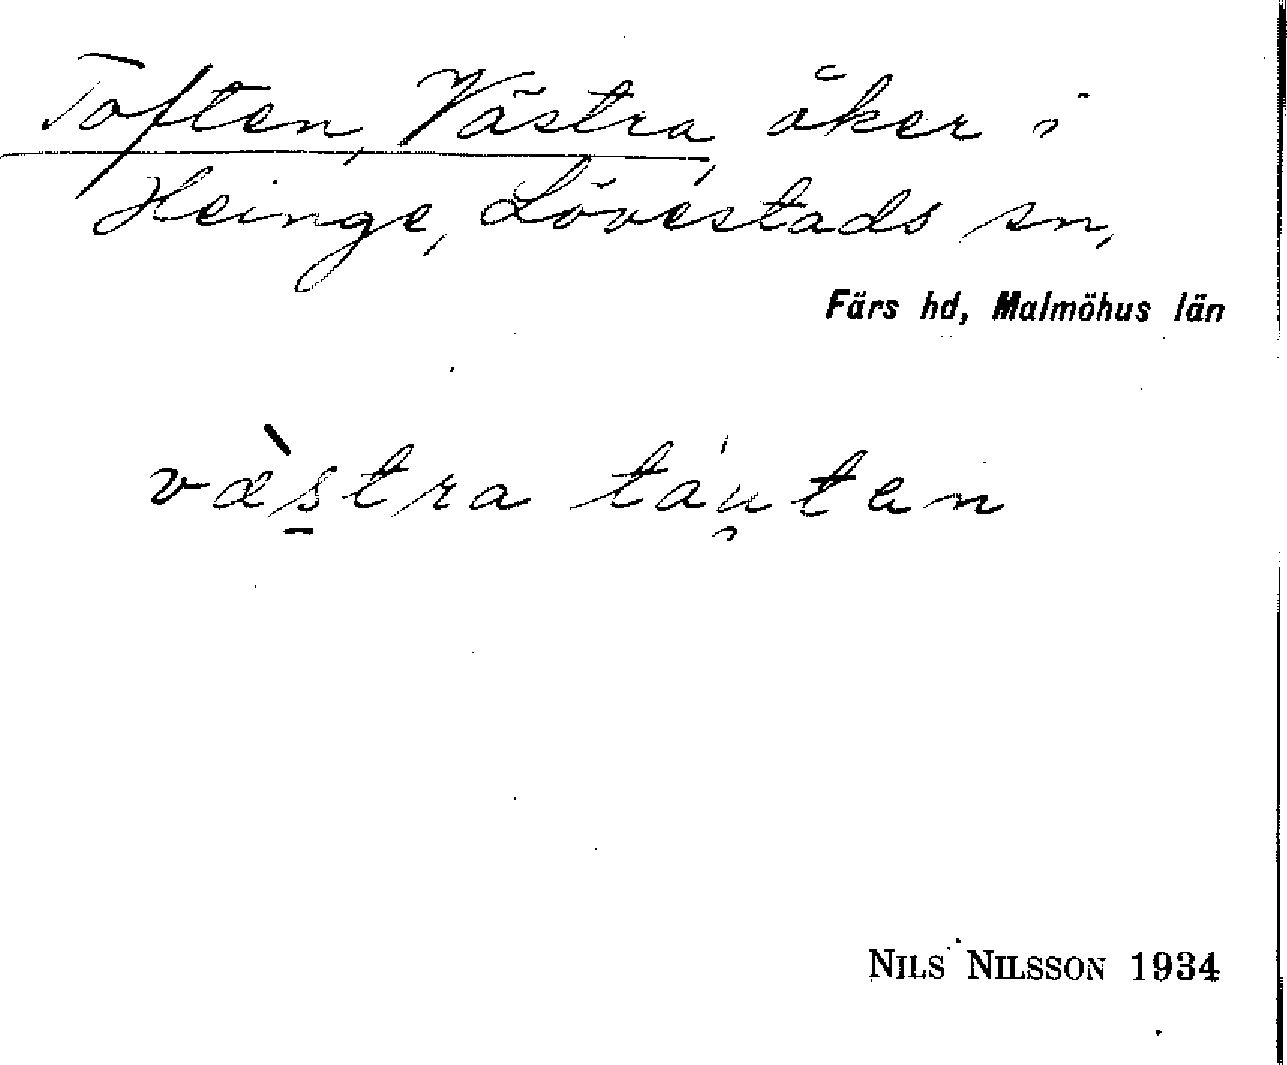 Toften, Västra, åker i
Heinge, Lövestads sn,
Färs hd, Malmöhus län
væ̀s̱tra táu̯ten
NILS NILSSON 1934